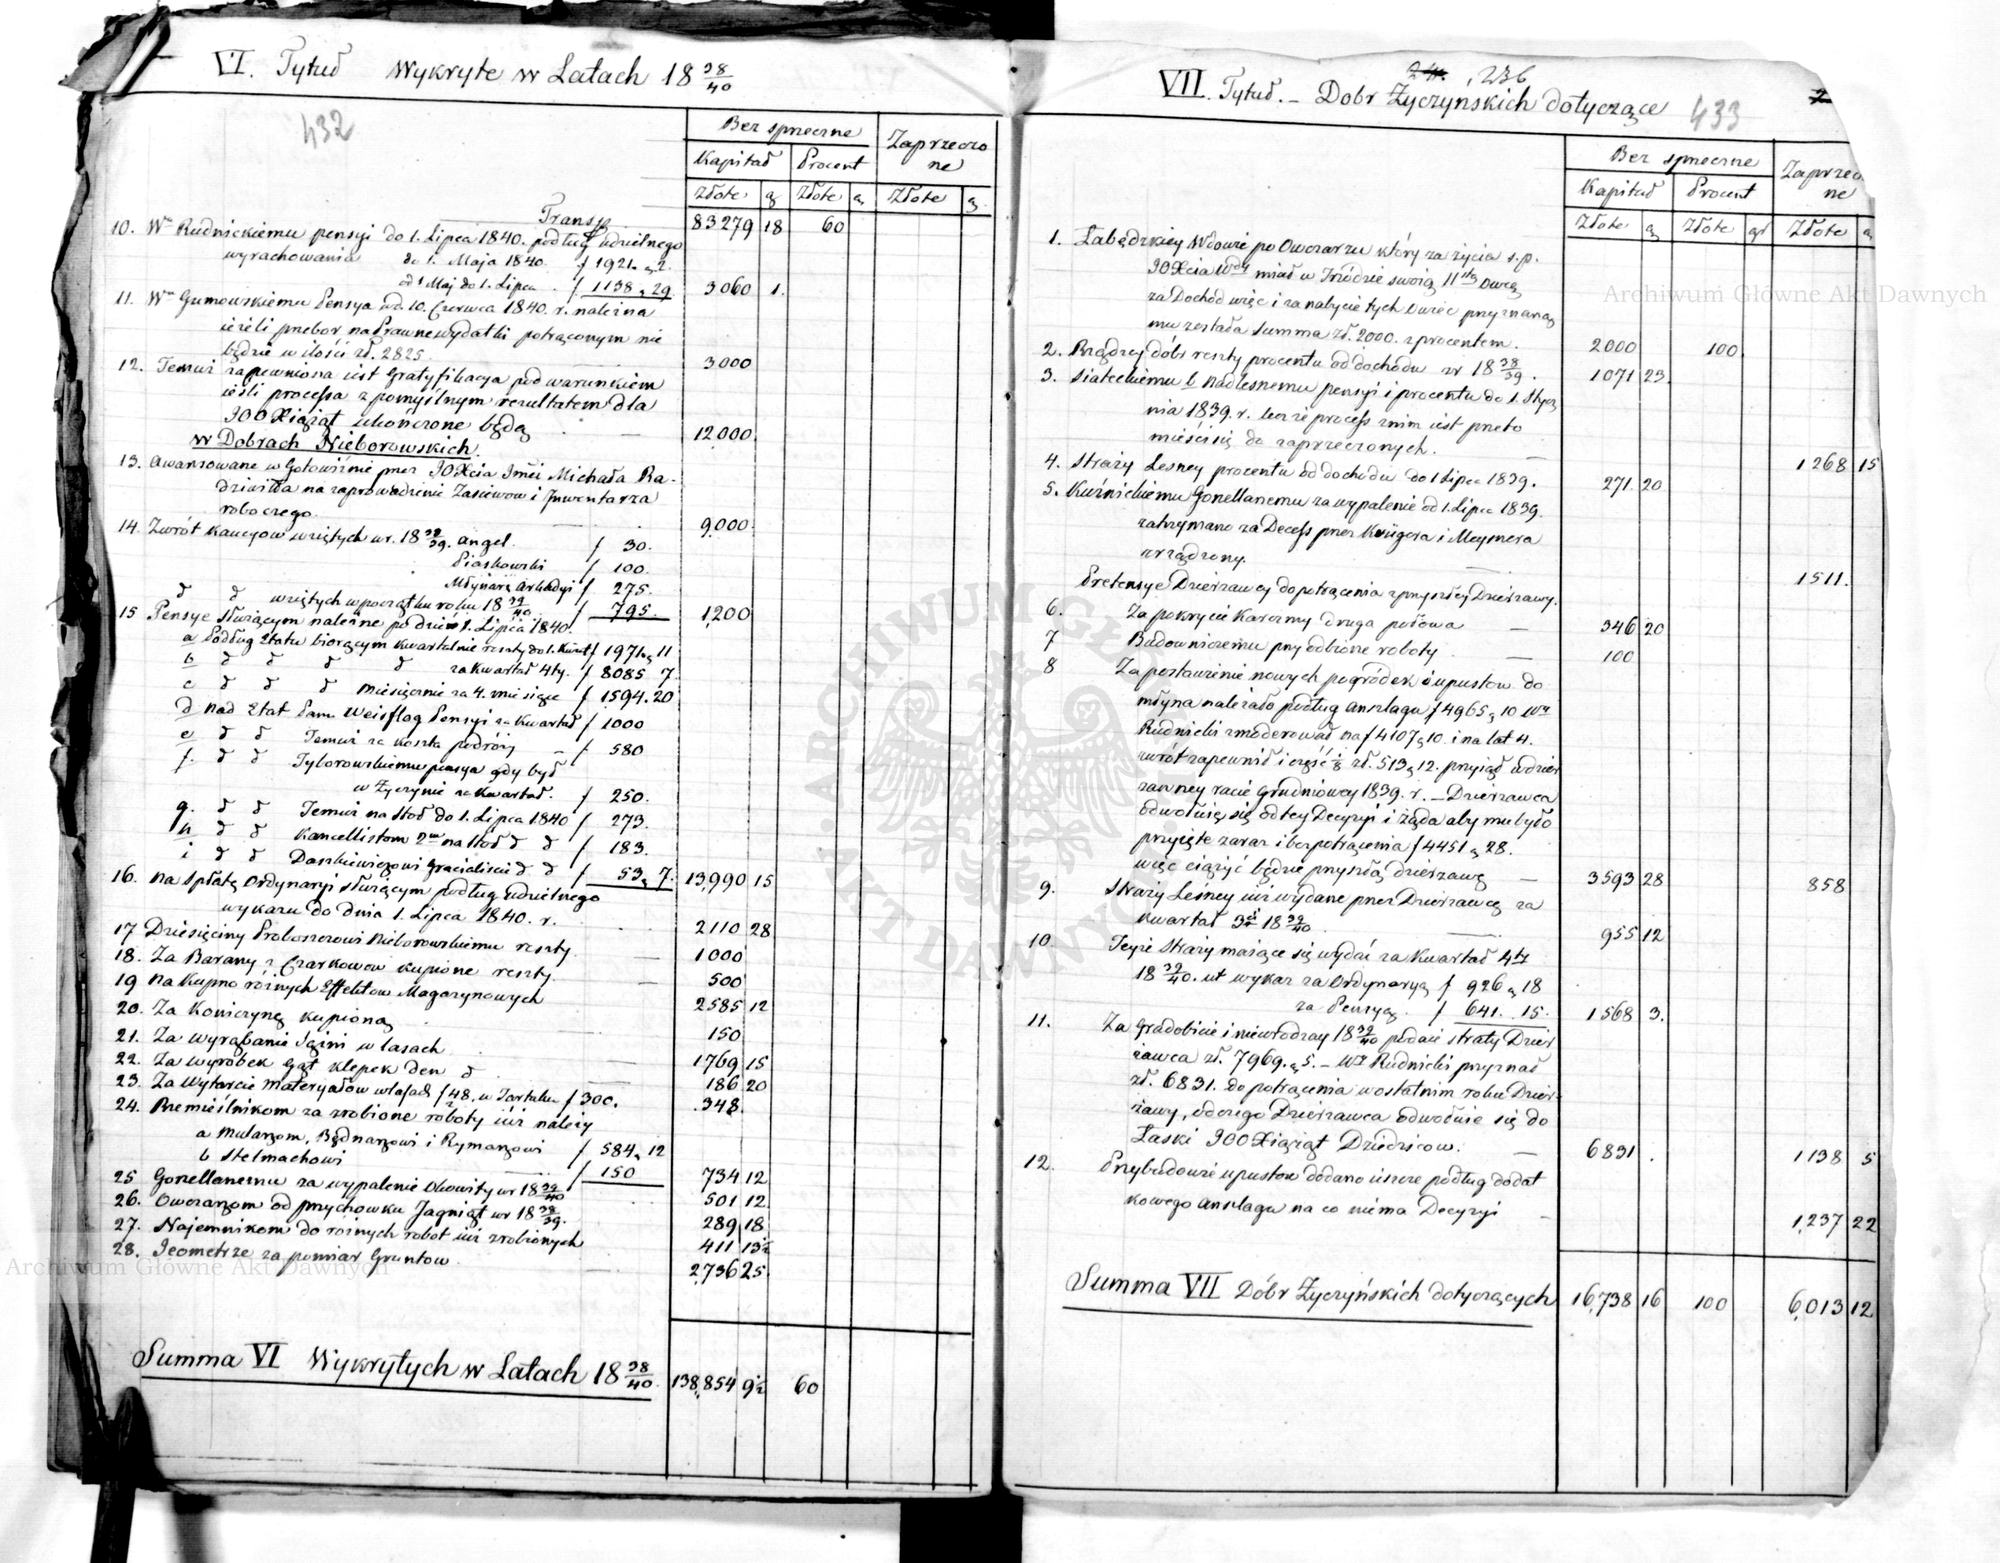 VI. Tytuł Wykryte w Latach 18 38/40
432
Bez sprzeczne
Zaprzeczo
ne
Kapitał Procent
Złote g Złote g Złote g
Transp
83279 18 60
10. Wu Rudnickiemu pensyi do 1. Lipca 1840. podług udzielnego
wyrachowania do 1. Maja 1840. f 1921. g 2.
od 1 Maj do 1. Lipca f 1138 g 29. 3060 1.
11. Wu Gumowskiemu Pensya od 10. Czerwca 1840. r. należna
ieżeli przebor na Prawne wydatki potrąconym nie
będzie w ilości zł. 2825. 3000
12. Temuż zapewniona iest Gratyfikacya pod warunkiem
ieśli processa z pomyślnym rezultatem dla
JOO Xiąźąt ukończone będą 12000.
w Dobrach Nieborowskich.
13. Awansowane w Gotowiźnie przez JO Xcia Imci Michała Ra-
dziwiłła na zaprowadzenie Zasiewow i Inwentarza
roboczego. 9000.
14. Zwrót Kaucyow wziętych w r. 18 38/39. Angel. f 30.
Piaskowski f 100.
Młynarz Arkadyi f 275.
d d wziętych w początku roku 18 39/40 f 795. 1,200
15 Pensye służącym należne po dzień 1. Lipca 1840.
a Podług Etatu biorącym kwartalnie reszty do 1. Kwiet f 1971 g 11
b d d d d za Kwartał 4ty. f 8085 7.
c d d d miesięcznie za 4. miesiące f 1594. 20
d nad Etat Pani Weisflog Pensyi za Kwartał f 1000
e d d Temuż za koszta podróży f 580
f. d d Tyborowskiemu pensya gdy był
w Życzynie za Kwartał. f 250.
g. d d Temuż na stoł do 1. Lipca 1840 f 273.
h d d Kancellistom 2m na stoł d d f 183.
i d d Daszkiewiczowi Gracialiście d d f 53 g 7. 13,990 15
16. Na Spłatę Ordynaryi służącym podług udzielnego
wykazu do dnia 1. Lipca 1840. r. 2110 28
17 Dziesięciny Proboszczowi Nieborowskiemu reszty 1000
18. Za Barany z Czarkowow kupione reszty 500
19 Na Kupno róźnych Effektow Magazynowych 2585 12
20. Za Koniczynę kupioną 150
21. Za wyrąbanie Sążni w lasach 1769 15
22. Za wyrobek Gąt klepek den d 186 20
23. Za Wytarcie Materyałow w lasach f 48. w Tartaku f 300. 348.
24. Rzemieślnikom za zrobione roboty iuż należy
a Mularzom, Bednarzowi i Rymarzowi f 584 g 12
b Stelmachowi f 150 734 12
25 Gonellanemu za wypalenie Okowity w r 18 39/40 501 12
26. Owczarzom od przychowku Jagniąt w r 18 38/39. 289 18
27. Najemnikom do róźnych robot iuż zrobionych 411 13½
28. Jeometrze za pomiar Gruntow 2736 25.
Summa VI Wykrytych w Latach 18 38/40. 138,854 9½ 60
236
VII. Tytuł. – Dobr Życzyńskich dotyczące 433
Bez sprzeczne
Zaprzeczo
ne
Kapitał Procent
Złote g Złote gr Złote g
1. Łabędzkiey Wdowie po Owczarzu który za życia ś. p.
JO Xcia Wdy miał w Trzódzie swoią 11stą Owcę
za Dochód więc i za nabycie tych Owiec przyznaną
mu została Summa zł. 2000. z procentem. 2000 100
2. Rządzcy dóbr reszty procentu od dochodu w r 18 38/39. 1071 23.
3. Siateckiemu b Nadleśnemu pensyi i procentu do 1. Stycz
nia 1839. r. lecz że process z nim iest przeto
mieści się do zaprzeczonych. 1268 15
4. Straży Leśney procentu od dochodu do 1 Lipca 1839. 271. 20
5. Kuźnickiemu Gonellanemu za wypalenie od 1. Lipca 1839.
zatrzymano za Decess przez Krügera i Meysnera
zrządzony. 1511.
Pretensye Dzierzawcy do potrącenia z przyszłey Dzierzawy.
6. Za pokrycie Karczmy druga połowa 346 20
7 Budowniczemu przy odbiorze roboty 100
8 Za postawienie nowych pogródek i upustow do
młyna należało podług Anszlagu f 4965 g 10 Wy
Rudnicki zmoderował na f 4107 g 10. i na lat 4.
zwrót zapewnił i część ⅛ zł. 513 g 12. przyiął w dzier
zawney racie Grudniowey 1839. r. – Dzierzawca
odwołuię się od tey Decyzyi i żąda aby mu było
przyięte zaraz i bez potrącenia f 4451 g 28.
więc ciążyć będzie przyszłą dzierzawę 3593 28 858
9. Straży Leśney iuż wydane przez Dzierzawcę za
Kwartał 3ci 18 39/40. 955 12
10. Teyże Straży maiące się wydać za Kwartał 4ty
18 39/40. ut wykaz za Ordynaryą f 926 g 18
za Pensyą f 641. 15. 1568 3.
11. Za Gradobicie i nieurodzay 18 39/40 podaie straty Dzier
żawca zł. 7969. g 5. – Wy Rudnicki przyznał
zł. 6831. do potrącenia w ostatnim roku Dzier-
żawy, od czego Dzierzawca odwołuie się do
Łaski JOO Xiąźąt Dziedzicow. 6831 . 1138 5
12. Przy budowie upustow dodano ieszcze podług dodat
kowego Anszlagu na co niema Decyzyi 1,237 22
Summa VII Dóbr Życzyńskich dotyczących 16,738 16 100 6,013 12
Archiwum Główne Akt Dawnych
Archiwum Główne Akt Dawnych
ARCHIWUM GŁÓWNE AKT DAWNYCH